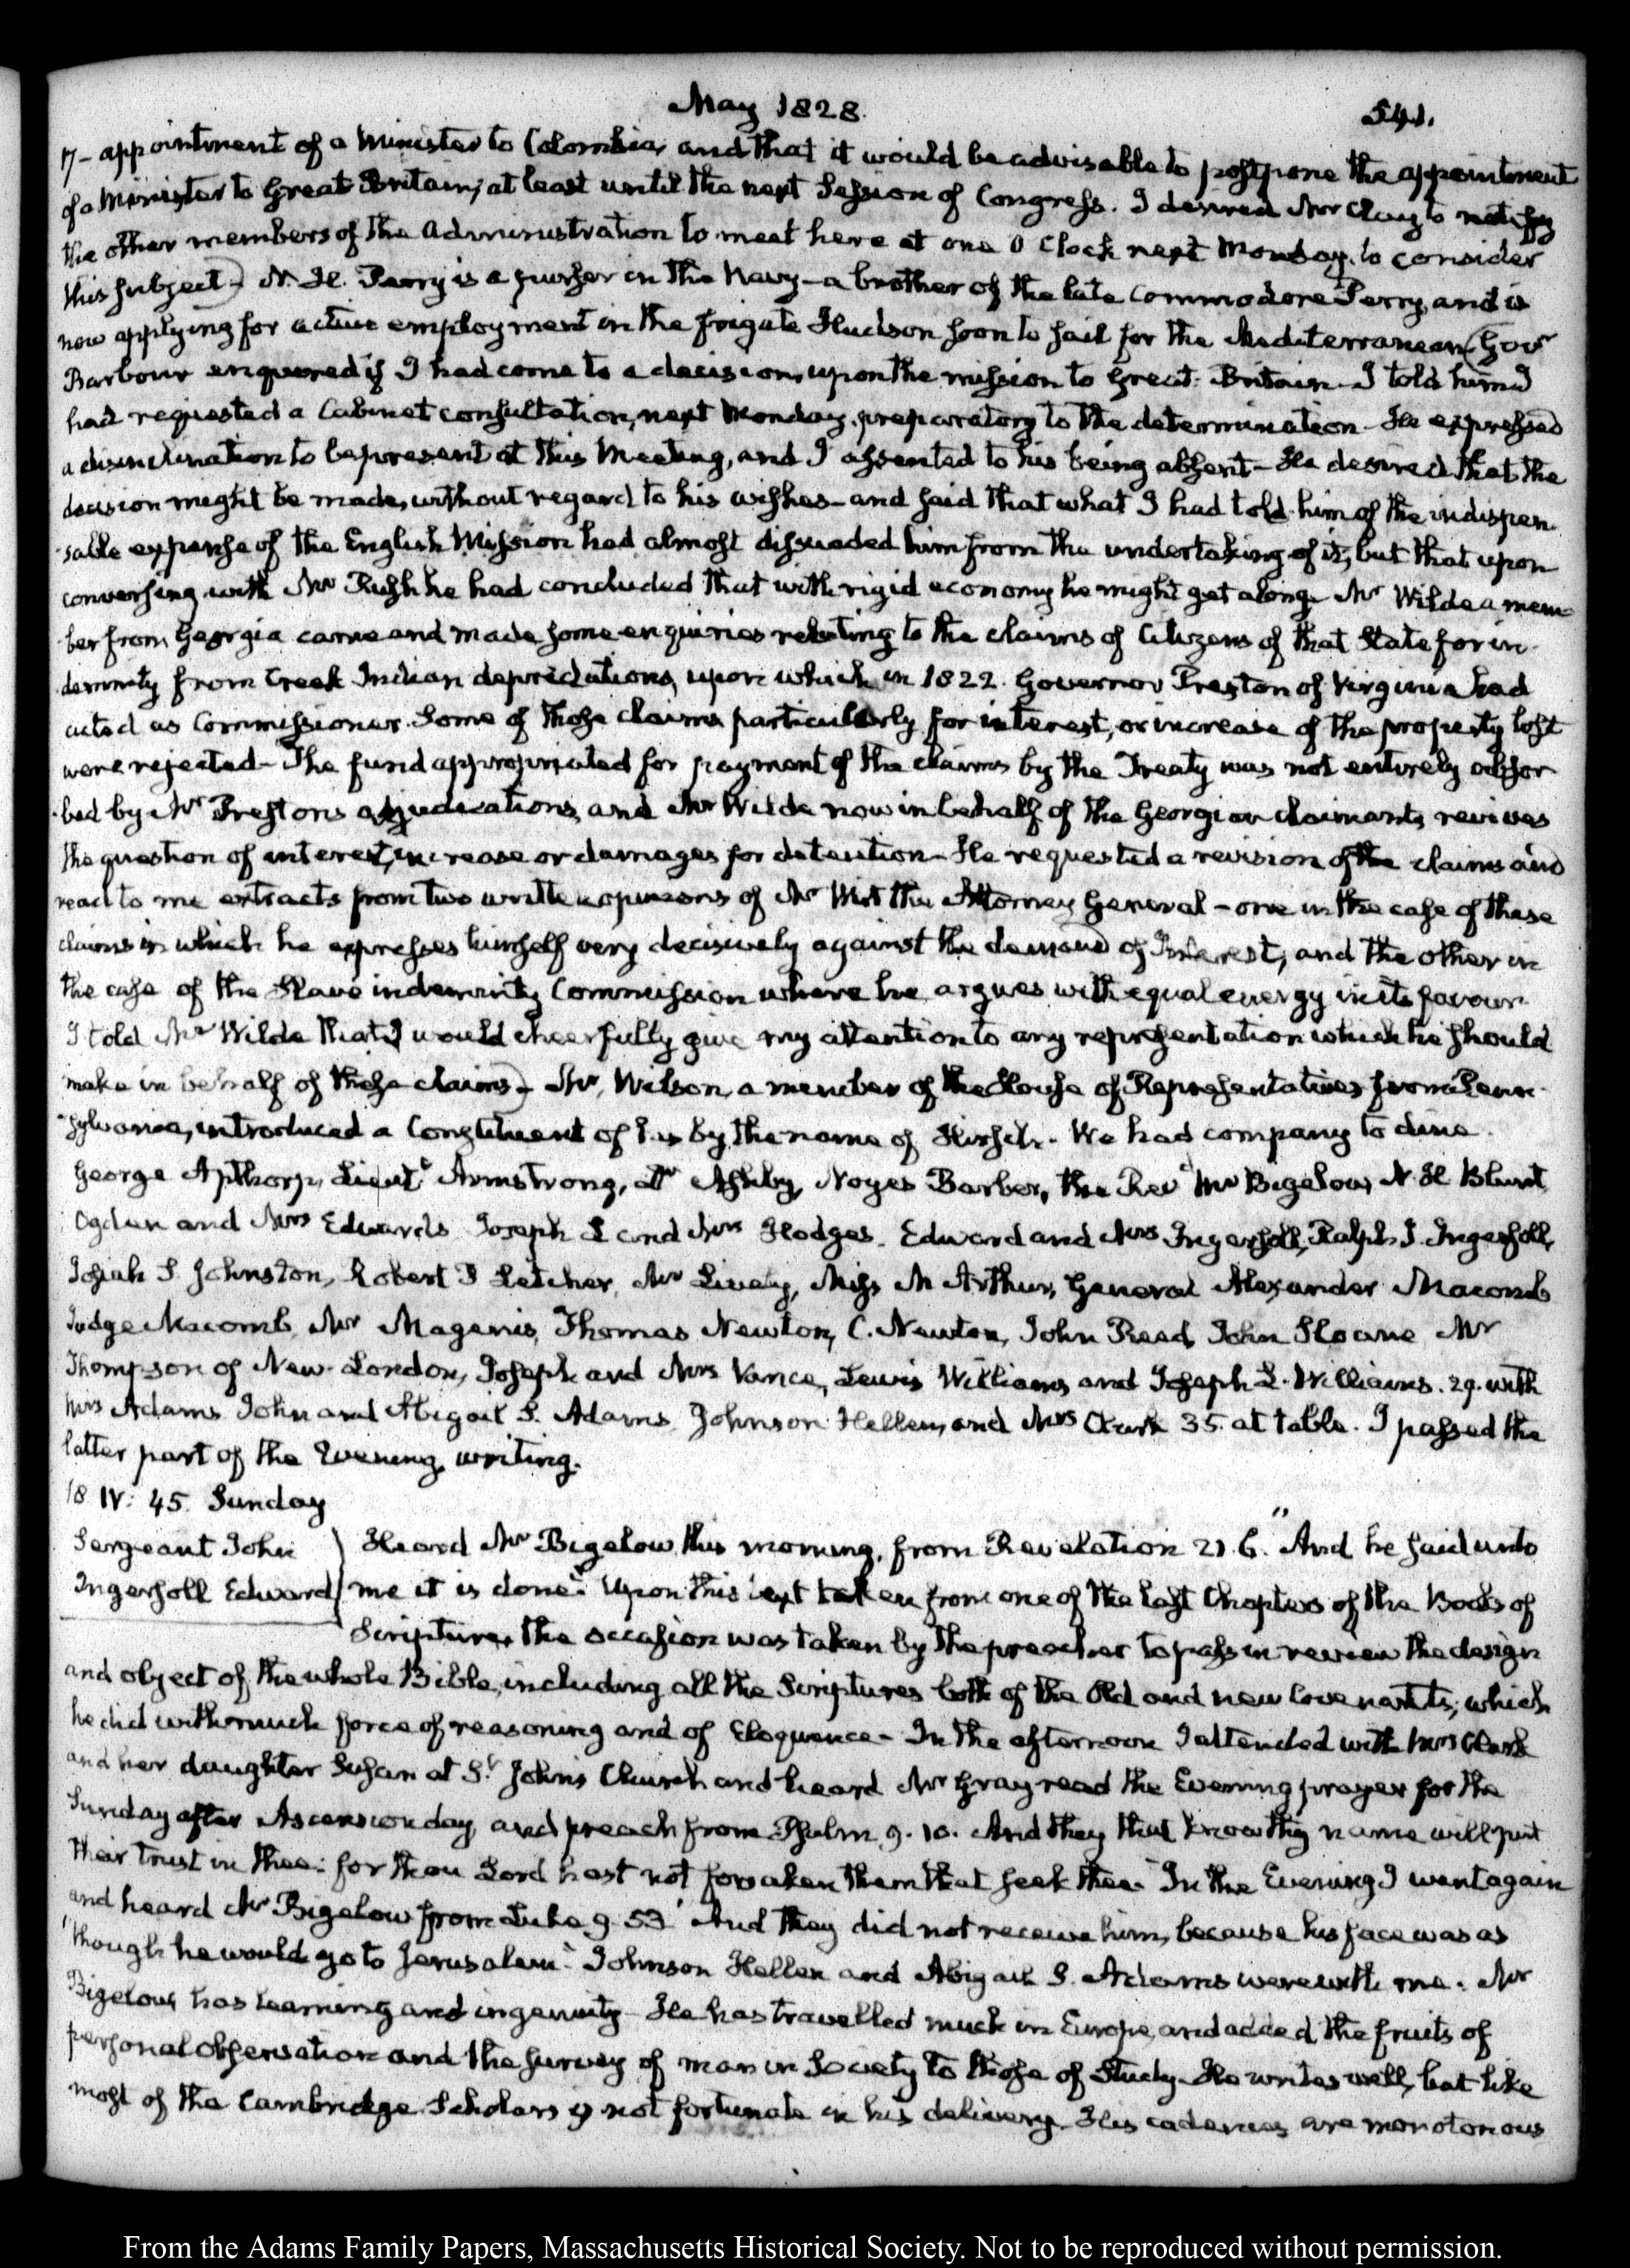 May 1828.
541.
17 - appointment of a Minister to Colombia, and that it would be advisable to postpone the appointment
of a Minister to Great Britain, at least until the next Session of Congress. I desired Mr Clay to notify
the other members of the Administration to meet here at one O Clock next Monday, to consider
this subject) - N. H. Perry is a purser in the Navy - a brother of the late Commodore Perry, and is
now applying for active employment in the frigate Hudson soon to sail for the Mediterranean (Govr
Barbour enquired if I had come to a decision, upon the mission to Great Britain - I told him I
had requested a Cabinet consultation, next Monday, preparatory to the determination - He expressed
a disinclination to be present at this Meeting, and I assented to his being absent - He desired that the
decision might be made, without regard to his wishes - and said that what I had told him of the indispen-
-sable expense of the English Mission had almost dissuaded him from the undertaking of it, but that upon
conversing with Mr Rush he had concluded that with rigid economy he might get along. Mr Wilde a mem-
ber from Georgia came and made some enquiries relating to the claims of Citizens of that State for in-
demnity from Creek Indian depredations, upon which in 1822. Governor Preston of Virginia had
acted as Commissioner. Some of those claims particularly for interest, or increase of the property lost
were rejected - The fund appropriated for payment of the claims by the Treaty was not entirely absor-
-bed by Mr Preston's adjudications, and Mr Wilde now in behalf of the Georgian claimants, revives
the question of interest, increase or damages for detention - He requested a revision of the claims and
read to me extracts from two written opinions of Mr Wirt the Attorney General - one in the case of these
claims in which he expresses himself very decisively against the demand of Interest, and the other in
the case of the Slave indemnity Commission where he argues with equal energy in its favour
I told Mr Wilde that I would cheerfully give my attention to any representation which he should
make in behalf of these claims) - Mr. Wilson, a member of the House of Representatives from Penn-
-sylvania, introduced a Constituent of his by the name of Hirsch. We had company to dine.
George Apthorp, Lieutt Armstrong, Mr Ashby, Noyes Barber, the Revd Mr Bigelow, N. H. Blunt,
Ogden and Mrs Edwards Joseph L and Mrs Hodges. Edward and Mrs Ingersoll, Ralph I. Ingersoll,
Josiah S. Johnston, Robert P Letcher, Mr Lively, Miss McArthur, General Alexander Macomb
Judge Macomb, Mr Magenis, Thomas Newton, C. Newton, John Reed, John Sloane, Mr
Thompson of New-London, Joseph and Mrs Vance, Lewis Williams and Joseph L. Williams. 29. with
Mrs Adams John and Abigail S. Adams Johnson Hellen, and Mrs Clark 35. at table. I passed the
latter part of the Evening, writing.
18. IV: 45. Sunday
Sergeant John
Ingersoll Edward
Heard Mr Bigelow, this morning, from Revelation 21. 6. "And he said unto
me it is done". Upon this text taken from one of the last Chapters of the Books of
Scripture, the occasion was taken by the preacher to pass in review the design
and object of the whole Bible, including all the Scriptures both of the Old and new Covenants; which
he did with much force of reasoning and of Eloquence - In the afternoon I attended with Mrs Clark
and her daughter Susan at St Johns Church and heard Mr Gray read the Evening prayer for the
Sunday after Ascension day, and preach from Psalm 9. 10. And they that know thy name will put
their trust in thee: for thou Lord hast not forsaken them that seek thee. In the Evening I went again
and heard Mr Bigelow from Luke 9. 53 "And they did not receive him, because his face was as
"though he would go to Jerusalem". Johnson Hellen and Abigail S. Adams were with me. Mr
Bigelow, has learning and ingenuity - He has travelled much in Europe, and added the fruits of
personal observation and the survey of man in Society to those of Study. He writes well, but like
most of the Cambridge Scholars is not fortunate in his delivery. His cadences are monotonous
From the Adams Family Papers, Massachusetts Historical Society. Not to be reproduced without permission.